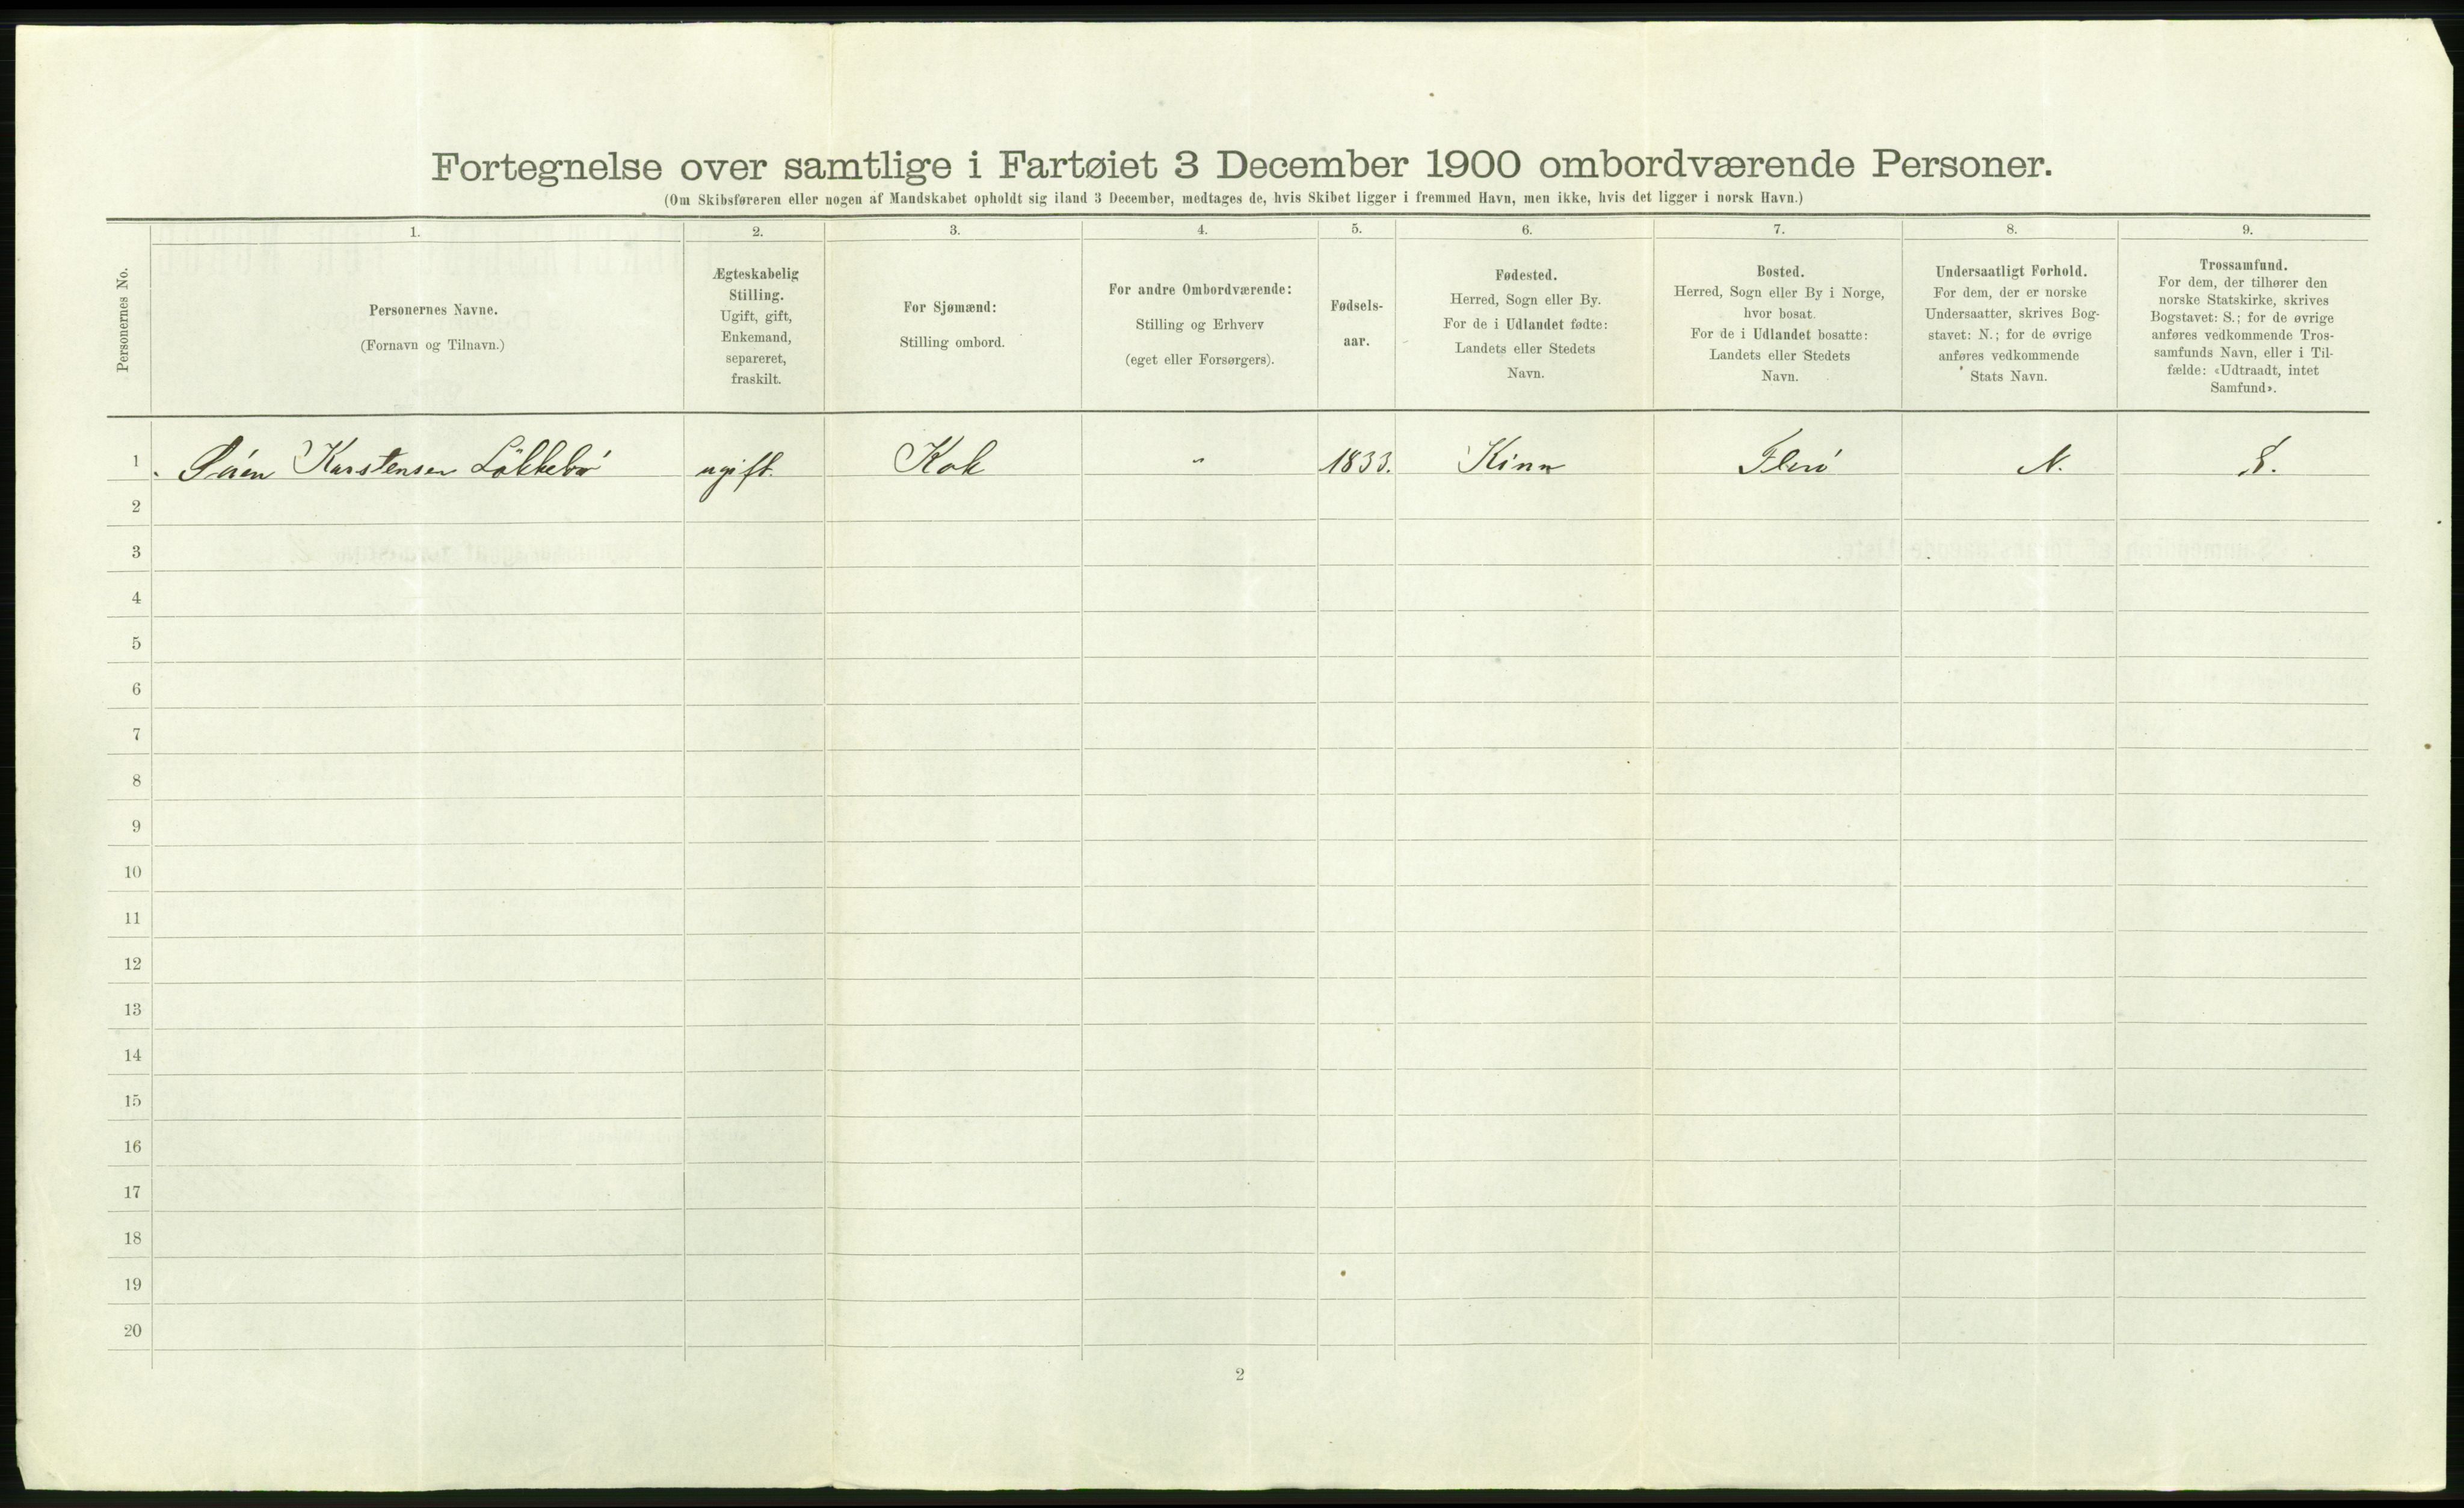 Fortegnelse over samtlige i Fartøiet 3 December 1900 ombordværende Personer.
(Om Skibsføreren eller nogen af Mandskabet opholdt sig iland 3 December, medtages de, hvis Skibet ligger i fremmed Havn, men ikke, hvis det ligger i norsk Havn.)
Personernes No.
1.
Personernes Navne.
(Fornavn og Tilnavn.)
2.
Ægteskabelig
Stilling.
Ugift, gift,
Enkemand,
separeret,
fraskilt.
3.
For Sjømænd:
Stilling ombord.
4.
For andre Ombordværende:
Stilling og Erhverv
(eget eller Forsørgers).
5.
Fødsels-
aar.
6.
Fødested.
Herred, Sogn eller By.
For de i Udlandet fødte:
Landets eller Stedets
Navn.
7.
Bosted.
Herred, Sogn eller By i Norge,
hvor bosat.
For de i Udlandet bosatte:
Landets eller Stedets
Navn.
8.
Undersaatligt Forhold.
For dem, der er norske
Undersaatter, skrives Bog-
stavet: N.; for de øvrige
anføres vedkommende
Stats Navn.
9.
Trossamfund.
For dem, der tilhører den
norske Statskirke, skrives
Bogstavet: S.; for de øvrige
anføres vedkommende Tros-
samfunds Navn, eller i Til-
fælde: «Udtraadt, intet
Samfund».
1 Karstensen ugift. Kok " 1833. Kinn Florö N. S.
2
3
4
5
6
7
8
9
10
11
12
13
14
15
16
17
18
19
20
2